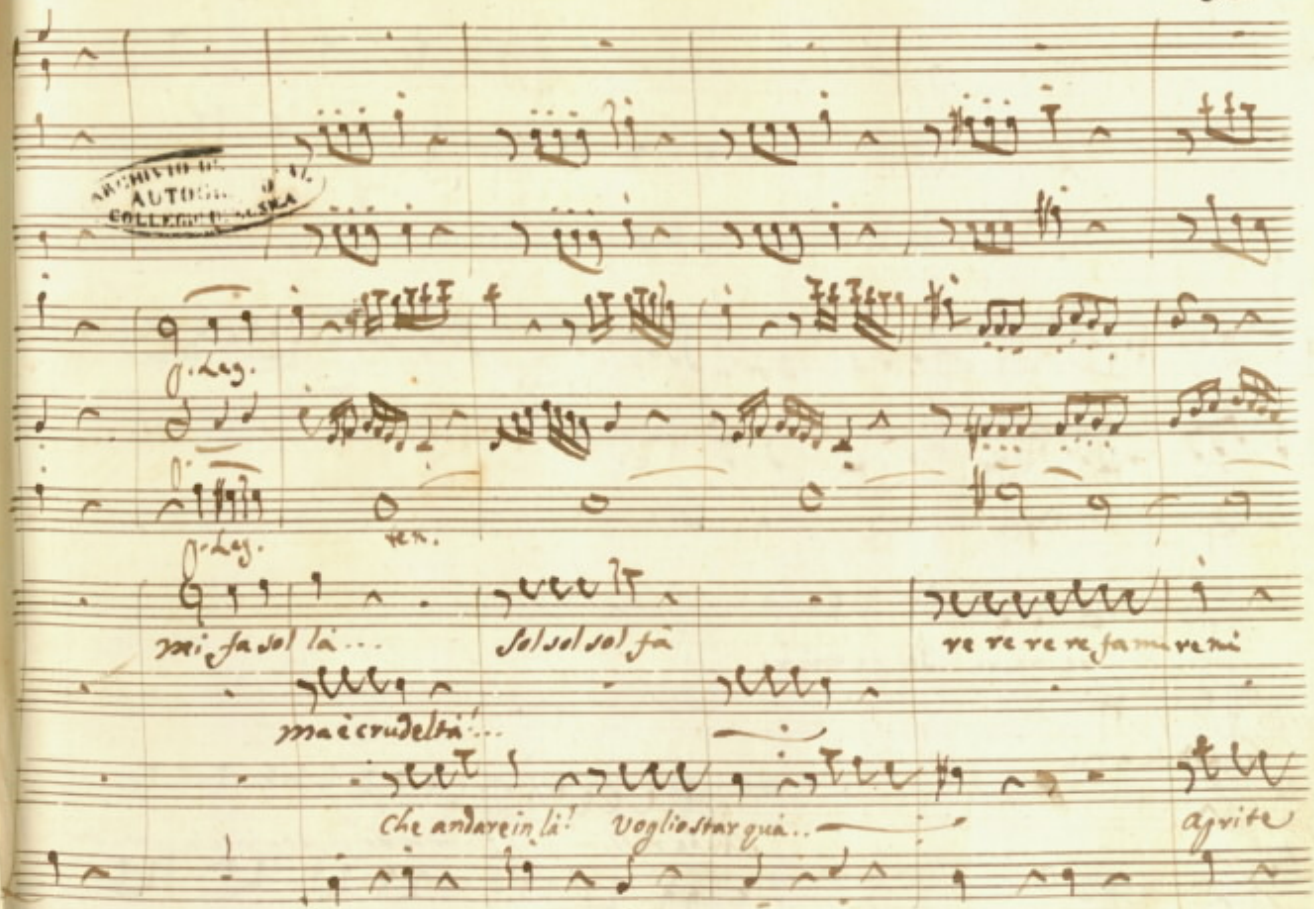 ARCHIVIO
COLLEGIO DI MUSICA
g. Leg.
g. Leg.
ten.
mi fa sol là... sol sol sol fa re re re re fa mi re mi
ma è crudeltà!...
Che andare in là! Voglio star quà.. aprite